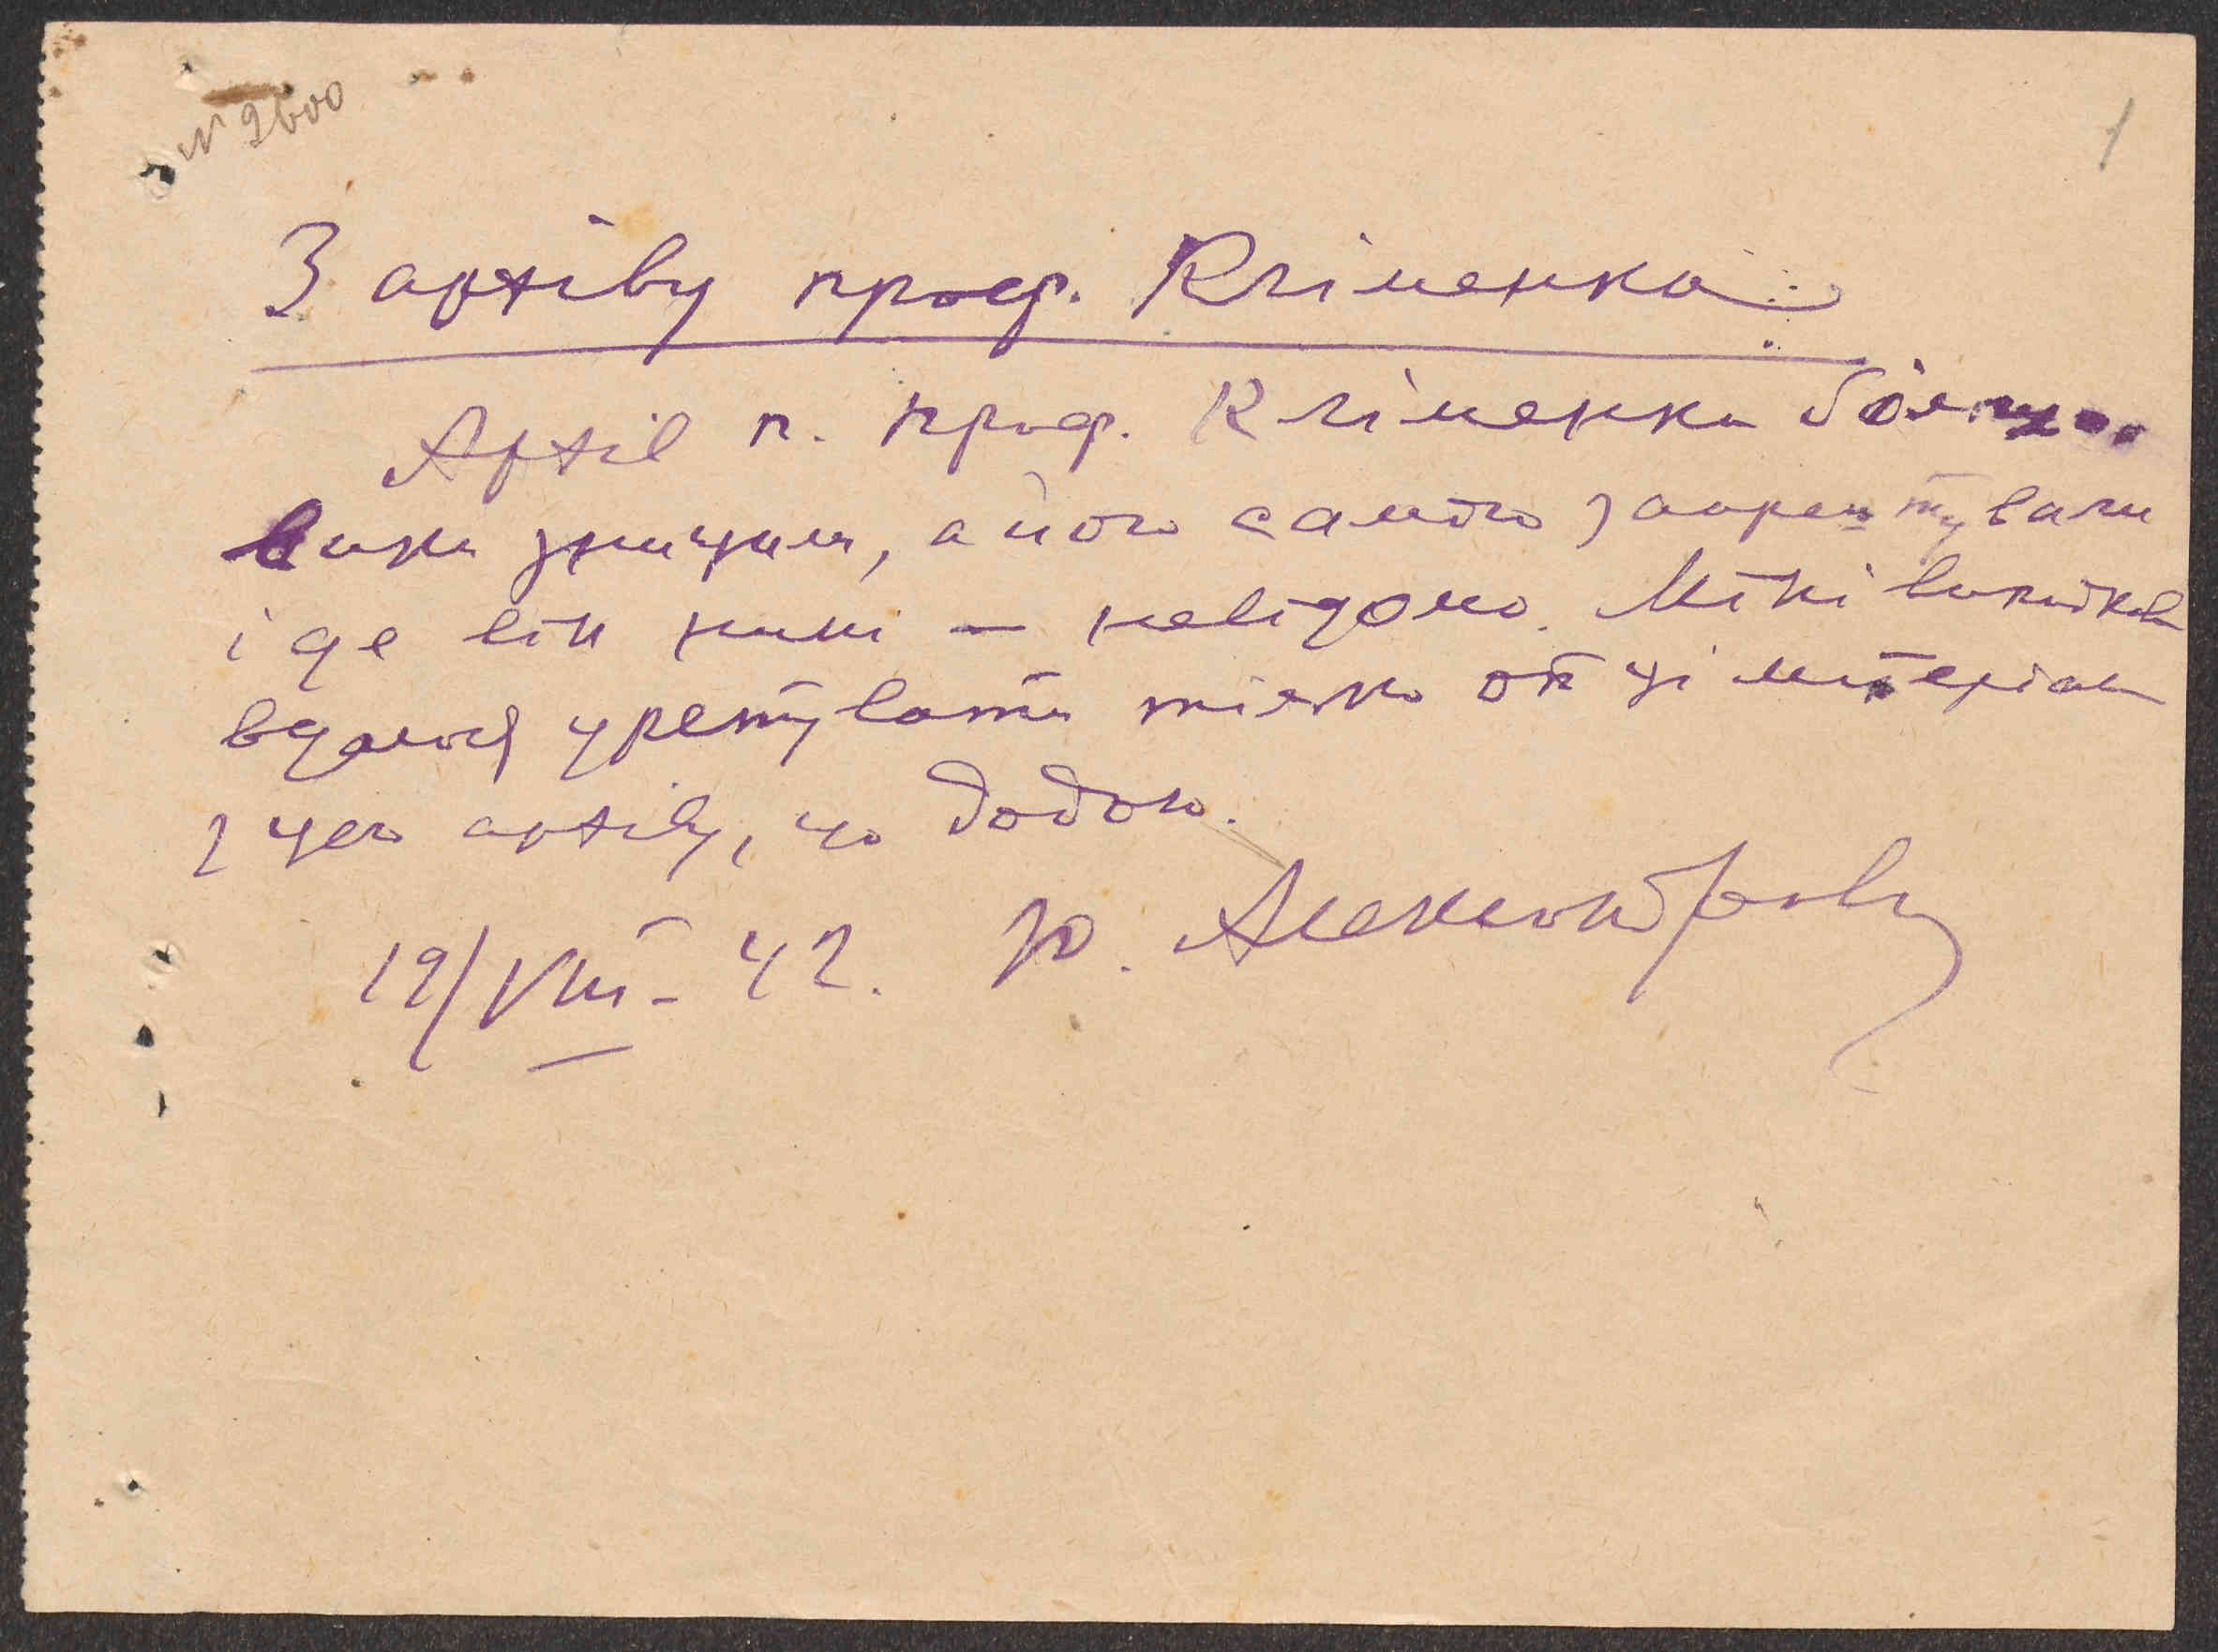 № 2600
1
З архіву проф. Кліменка
Архів п. проф. Кліменка більшо-
вики знищили, а його самого заарештували
і де він нині — невідомо. Мені випадково
вдалося урятувати тільки от ці матеріали
з цего архіву, що додаю.
19/VIII - 42. Ю. Александрович